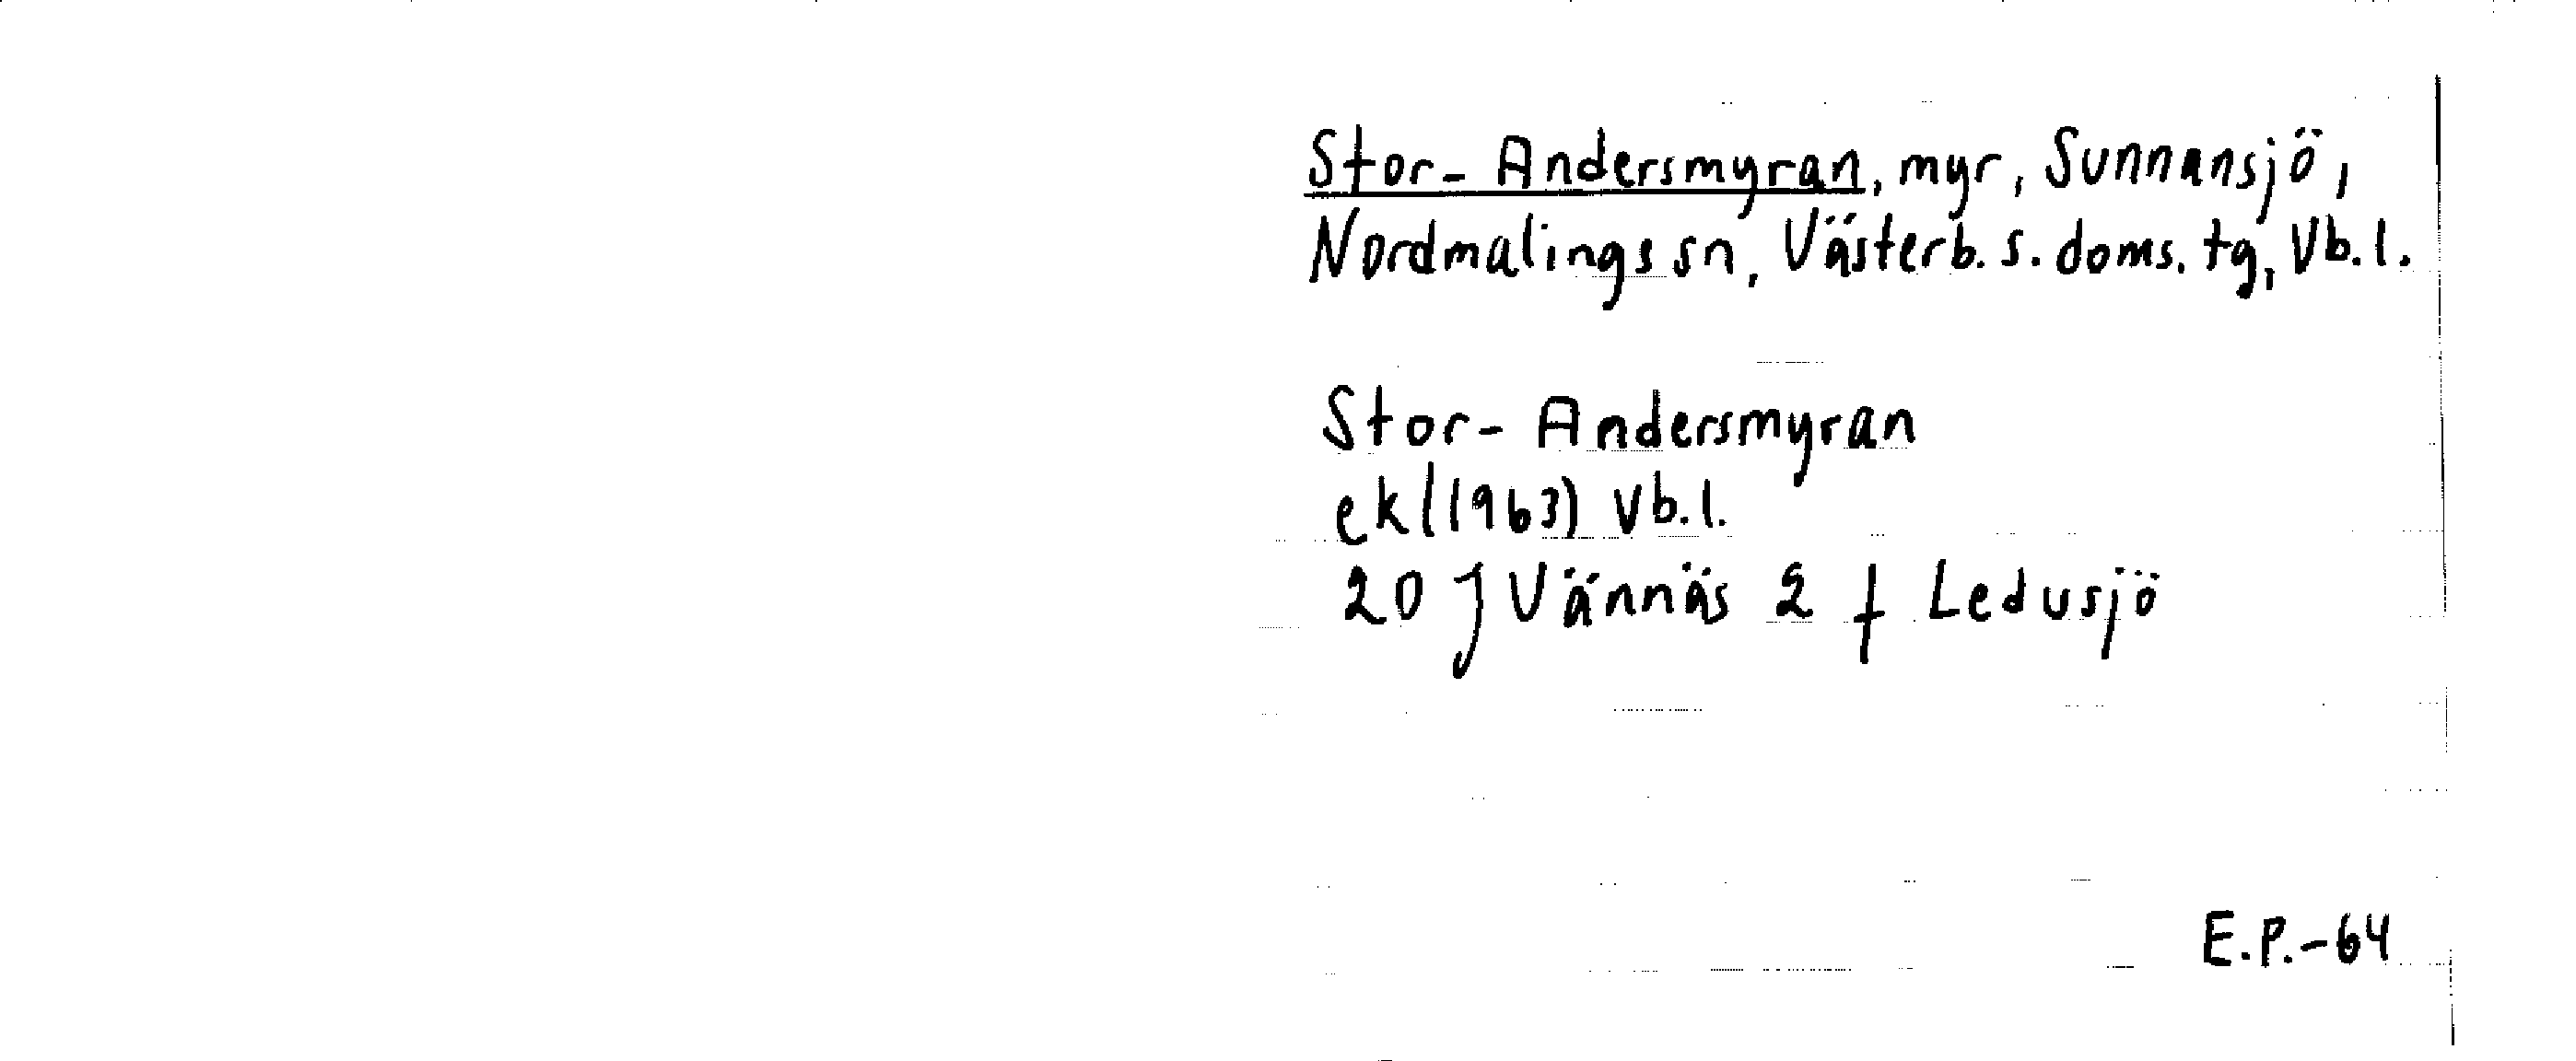 Stor-Andersmyran, myr, Sunnansjö,
Nordmalings sn, Västerb. s. doms. tg, Vb.l.
Stor-Andersmyran
ek (1963) Vb.l.
20 J Vännäs 2 f Ledusjö
E.P.-64